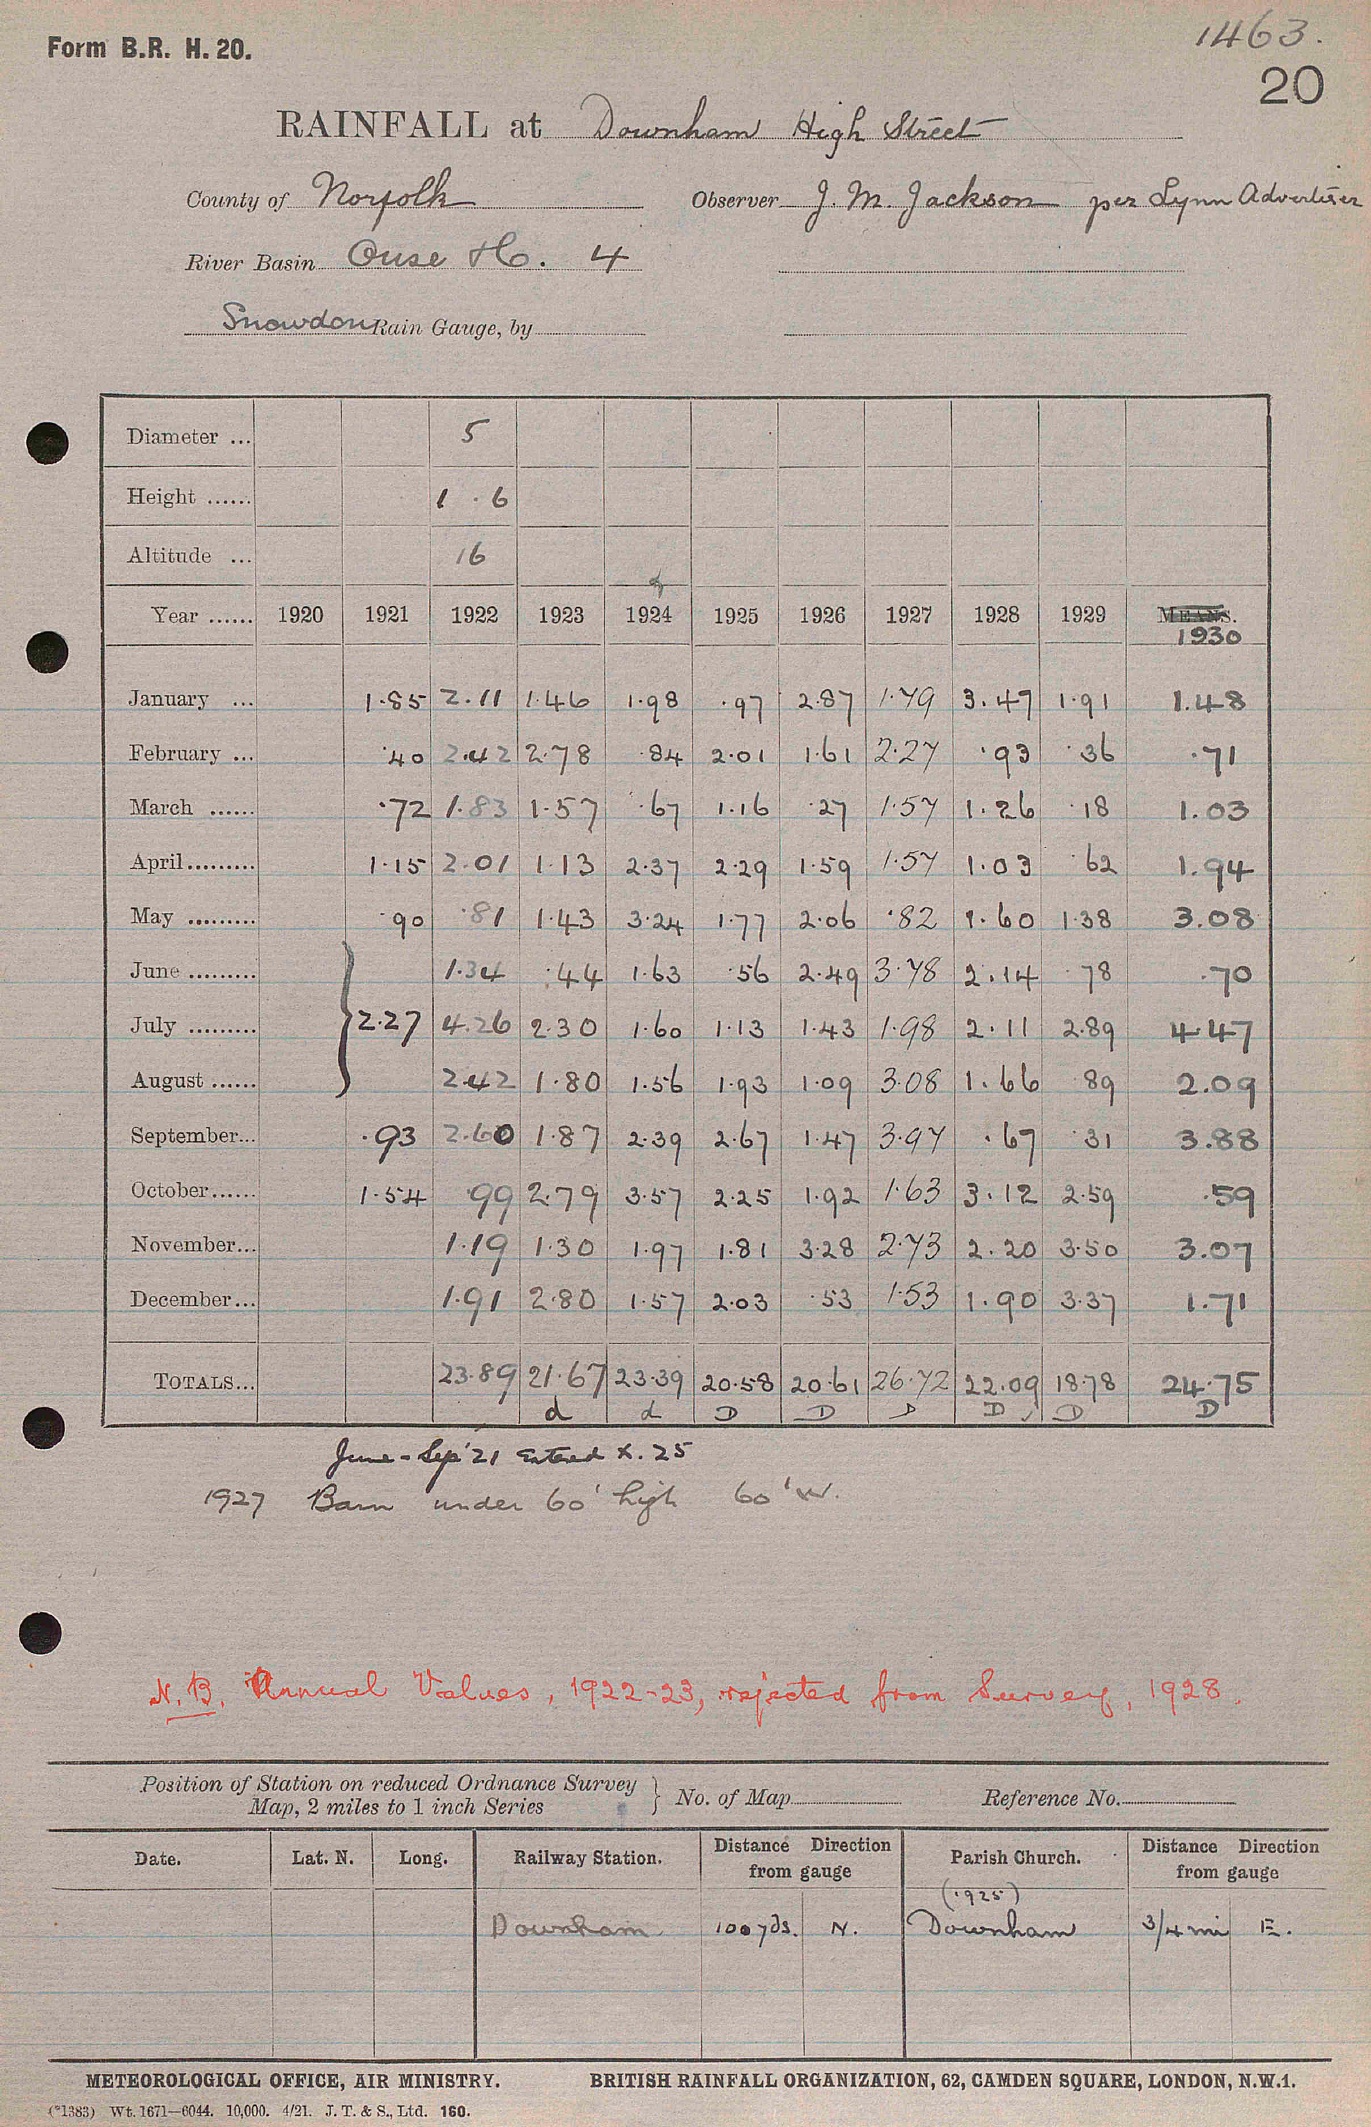 1463.
Form B.R. H. 20.
20
RAINFALL at Downham High Street
County of Norfolk Observer J. M. Jackson per Lynn Advertiser
River Basin Ouse &c. 4
Snowdon Rain Gauge, by
Diameter ... 5
Height ...... 1 . 6
Altitude ... 16
Year ...... 1920 1921 1922 1923 1924 1925 1926 1927 1928 1929 MEANS.
1930
January ... 1.85 2.11 1.46 1.98 .97 2.87 1.79 3.47 1.91 1.48
February ... .40 2.42 2.78 .84 2.01 1.61 2.27 .93 .36 .71
March ...... .72 1.83 1.57 .67 1.16 .27 1.57 1.26 .18 1.03
April......... 1.15 2.01 1.13 2.37 2.29 1.59 1.57 1.03 .62 1.94
May ......... .90 .81 1.43 3.24 1.77 2.06 .82 1.60 1.38 3.08
June ......... 1.34 .44 1.63 .56 2.49 3.78 2.14 .78 .70
July ......... } 2.27 4.26 2.30 1.60 1.13 1.43 1.98 2.11 2.89 4.47
August ...... 2.42 1.80 1.56 1.93 1.09 3.08 1.66 .89 2.09
September... .93 2.60 1.87 2.39 2.67 1.47 3.97 .67 .31 3.88
October...... 1.54 .99 2.79 3.57 2.25 1.92 1.63 3.12 2.59 .59
November... 1.19 1.30 1.97 1.81 3.28 2.73 2.20 3.50 3.07
December... 1.91 2.80 1.57 2.03 .53 1.53 1.90 3.37 1.71
TOTALS... 23.89 21.67 23.39 20.58 20.61 26.72 22.09 18.78 24.75
d d D D D D D D
June - Sep '21 entered X. 25
1927 Barn under 60' high 60' W.
N.B. Annual Values, 1922-23, rejected from Survey, 1928.
Position of Station on reduced Ordnance Survey
Map, 2 miles to 1 inch Series } No. of Map Reference No.
Date. Lat. N. Long. Railway Station. Distance Direction from gauge Parish Church. Distance Direction from gauge
(1925)
Downham 100 yds. N. Downham 3/4 mi E.
METEOROLOGICAL OFFICE, AIR MINISTRY. BRITISH RAINFALL ORGANIZATION, 62, CAMDEN SQUARE, LONDON, N.W.1.
(*1383) Wt. 1671—6044. 10,000. 4/21. J. T. & S., Ltd. 160.